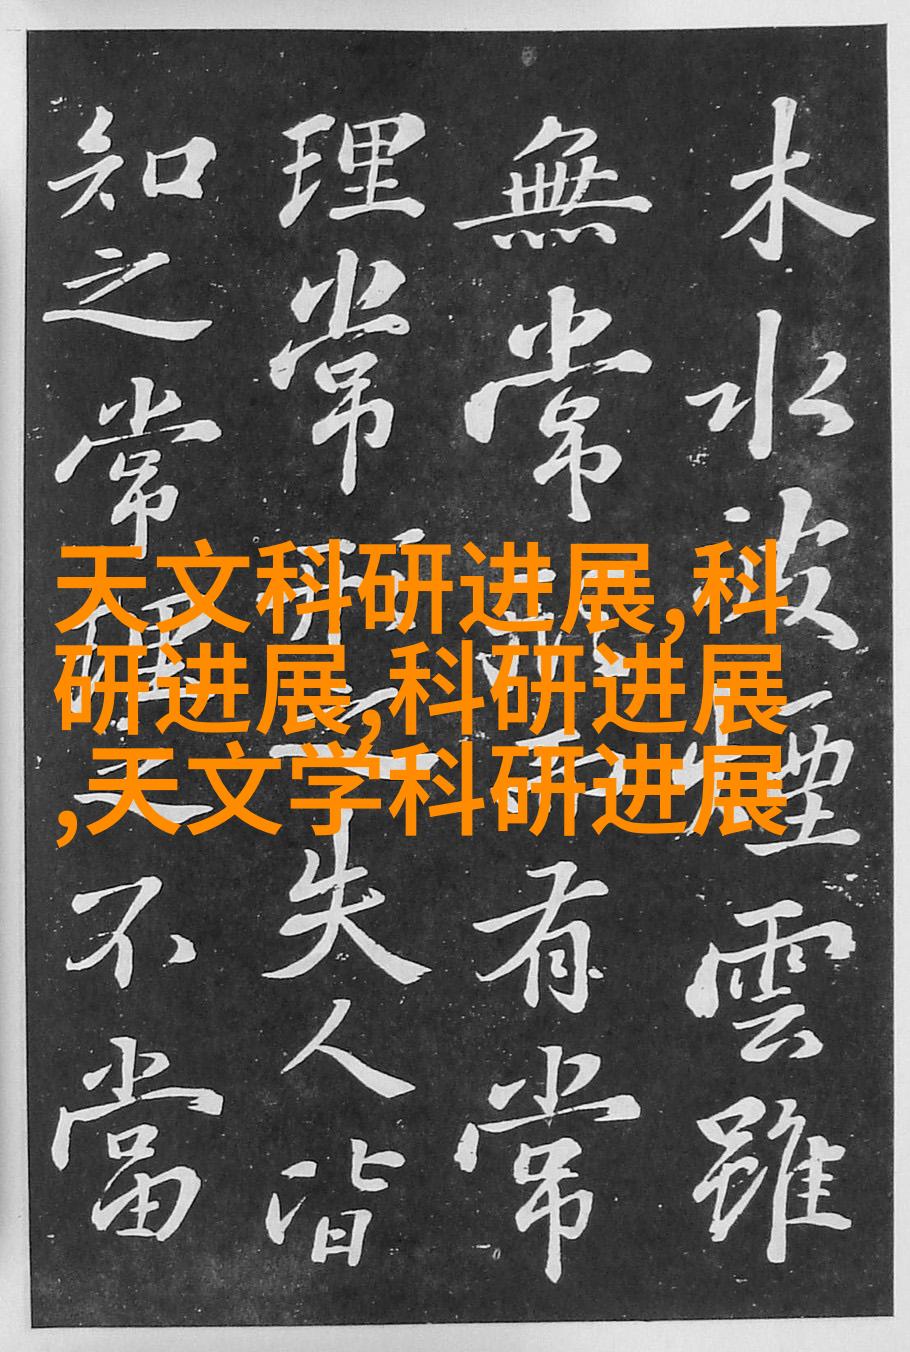 木水波煙雲雖
無常形而有常
理常形之失人皆
知之常理之不當
天文科研进展,科
研进展,科研进展
,天文学科研进展